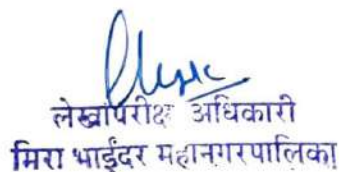 लेखापरीक्ष अधिकारी
मिरा भाईंदर महानगरपालिका